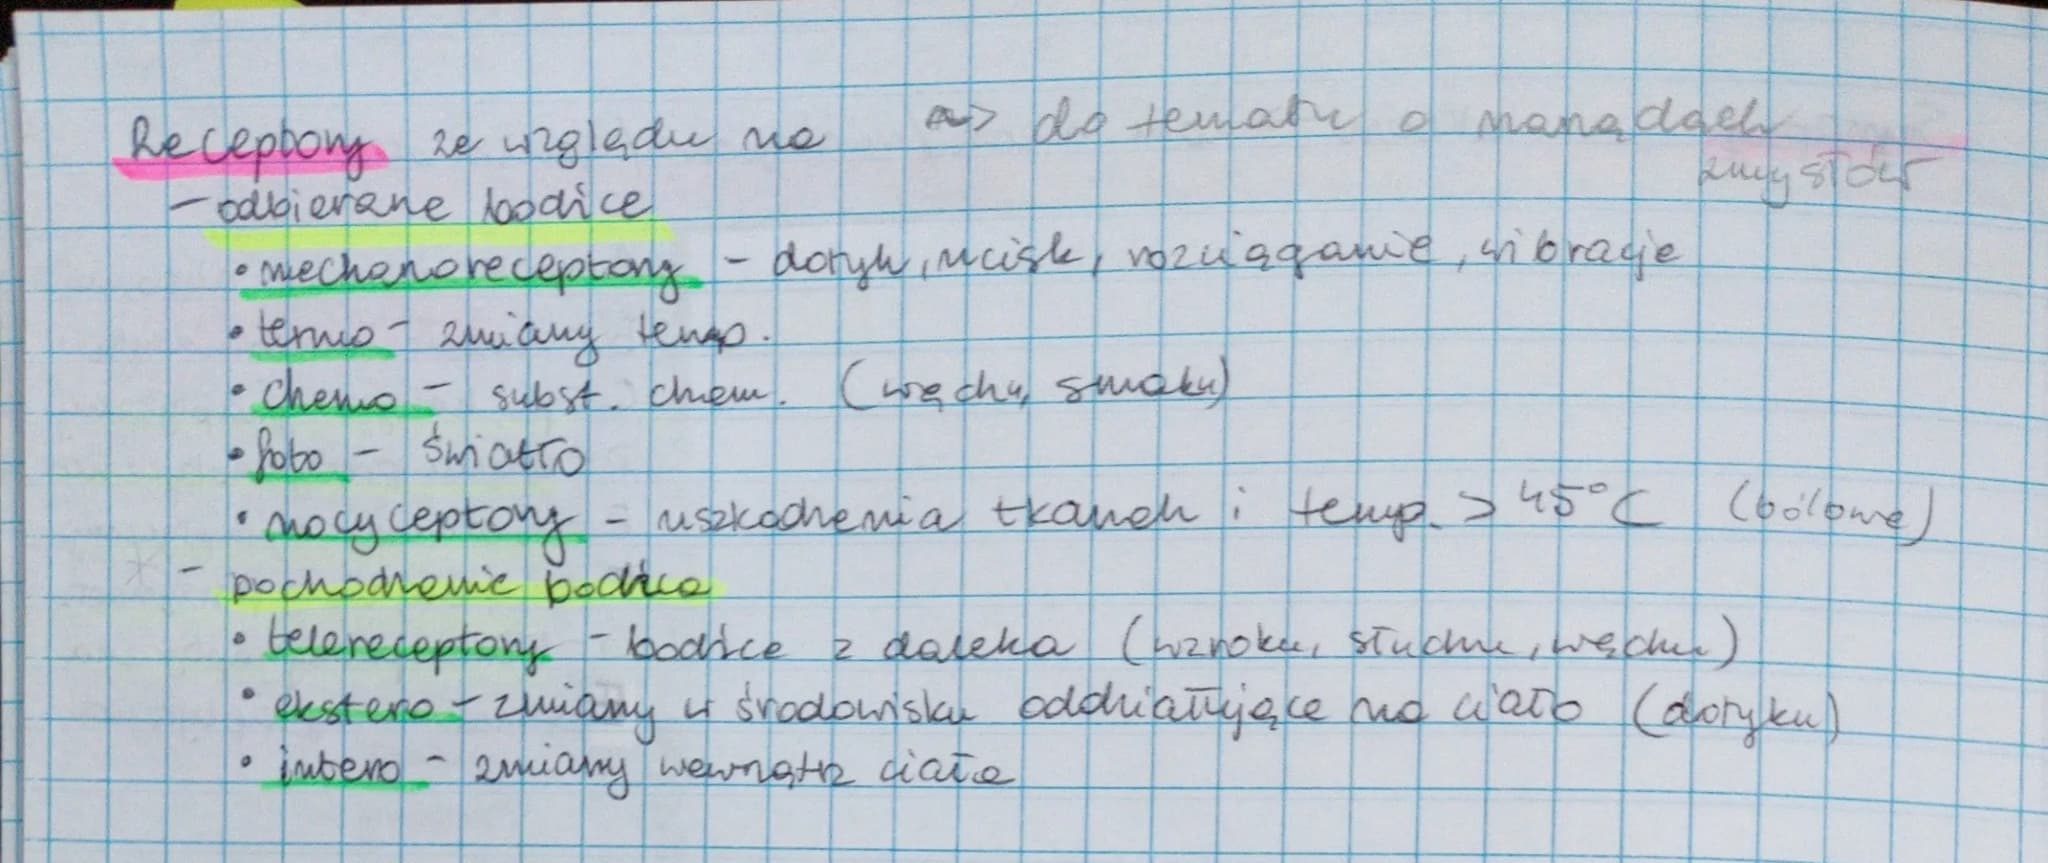 Receptory ze względu na => do tematu o narządach
zmysłów
- odbierane bodźce
• mechanoreceptory - dotyk, ucisk, rozciąganie, wibracje
• termo - zmiany temp.
• chemo - subst. chem. (węchu, smaku)
• foto - światło
• nocyceptory - uszkodzenia tkanek i temp. > 45°C (bólowe)
- pochodzenie bodźca
• telereceptory - bodźce z daleka (wzroku, słuchu, węchu)
• ekstero - zmiany w środowisku oddziałujące na ciało (dotyku)
• intero - zmiany wewnątrz ciała